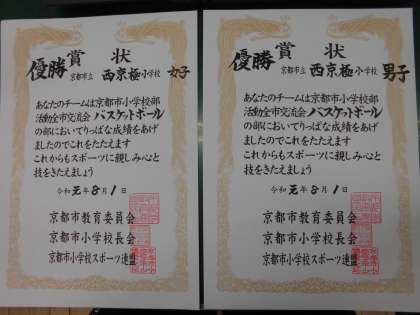 賞状
優勝
京都市立 西京極小学校 女子
あなたのチームは京都市小学校部
活動全市交流会 バスケットボール
の部においてりっぱな成績をあげ
ましたのでこれをたたえます
これからもスポーツに親しみ心と
技をきたえましょう
令和元年8月1日
京都市教育委員会
京都市小学校長会
京都市小学校スポーツ連盟
賞状
優勝
京都市立 西京極小学校 男子
あなたのチームは京都市小学校部
活動全市交流会 バスケットボール
の部においてりっぱな成績をあげ
ましたのでこれをたたえます
これからもスポーツに親しみ心と
技をきたえましょう
令和元年8月1日
京都市教育委員会
京都市小学校長会
京都市小学校スポーツ連盟